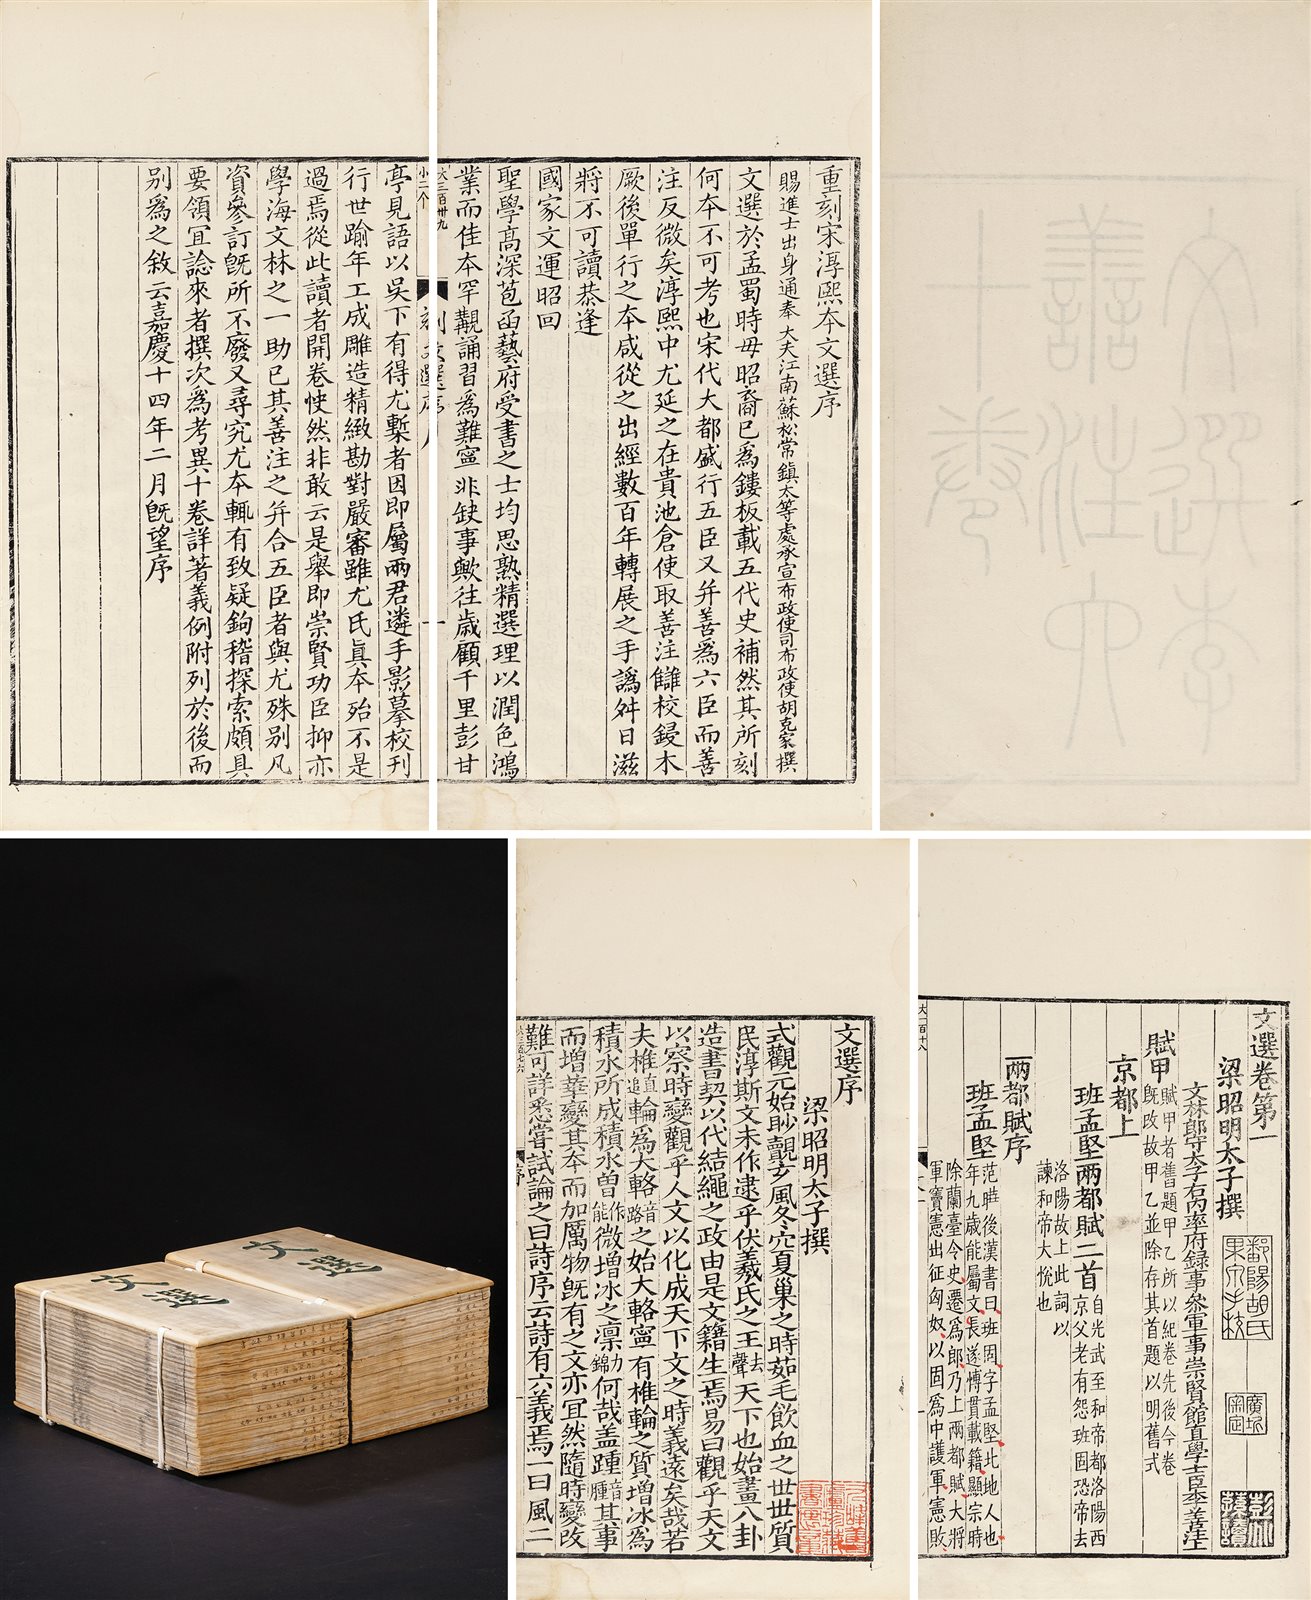 重刻宋淳熙本文選序
賜進士出身通奉大夫江南蘇松常鎮太等處承宣布政使司布政使胡克家撰
文選於孟蜀時毋昭裔已爲鏤板載五代史補然其所刻
何本不可考也宋代大都盛行五臣又并善爲六臣而善
注反微矣淳熙中尤延之在貴池倉使取善注讎校鋟木
厥後單行之本咸從之出經數百年轉展之手譌舛日滋
將不可讀恭逢
國家文運昭回
聖學高深苞函藝府受書之士均思熟精選理以潤色鴻
業而佳本罕覯誦習爲難寧非缺事歟往歲顧千里彭甘
大三百卅九
小二个
刻文選序
一
亭見語以吳下有得尤槧者因即屬兩君遴手影摹校刊
行世踰年工成雕造精緻勘對嚴審雖尤氏眞本殆不是
過焉從此讀者開卷快然非敢云是舉即崇賢功臣抑亦
學海文林之一助已其善注之并合五臣者與尤殊別凡
資參訂旣所不廢又尋究尤本輒有致疑鉤稽探索頗具
要領宜諗來者撰次爲考異十卷詳著義例附列於後而
别爲之敘云嘉慶十四年二月旣望序
文選李
善注六
十卷
文選卷第一
梁昭明太子撰
文林郎守太子右内率府録事參軍事崇賢館直學士臣李善注上
賦甲
賦甲者舊題甲乙所以紀卷先後今卷
旣改故甲乙並除存其首題以明舊式
京都上
班孟堅兩都賦二首
自光武至和帝都洛陽西
京父老有怨班固恐帝去
洛陽故上此詞以
諫和帝大恱也
兩都賦序
班孟堅
范曄後漢書曰班固字孟堅北地人也
年九歲能屬文長遂博貫載籍顯宗時
除蘭臺令史遷爲郎乃上兩都賦大將
軍竇憲出征匈奴以固爲中護軍憲敗
大一百廿八
鄱陽胡氏
果泉手校
文選序
梁昭明太子撰
式觀元始眇覿玄風冬穴夏巢之時茹毛飲血之世世質
民淳斯文未作逮乎伏羲氏之王去聲天下也始畫八卦
造書契以代結繩之政由是文籍生焉易曰觀乎天文
以察時變觀乎人文以化成天下文之時義遠矣哉若
夫椎直追輪爲大輅音路之始大輅寧有椎輪之質增冰爲
積水所成積水曾作能微增冰之凛力錦何哉盖踵音腫其事
而增華變其本而加厲物旣有之文亦宜然隨時變改
難可詳悉嘗試論之曰詩序云詩有六義焉一曰風二
序
文選
文選